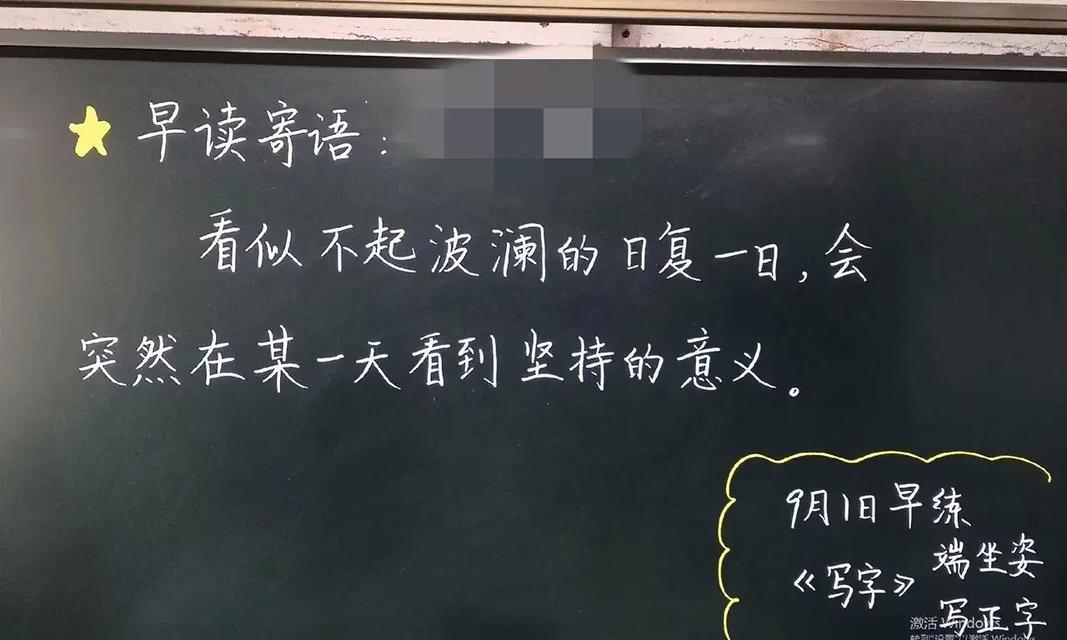 早读寄语:
看似不起波澜的日复一日,会
突然在某一天看到坚持的意义。
9月1日早练
《写字》 端坐姿
写正字
激活 Windows
转到"设置"以激活 Windows